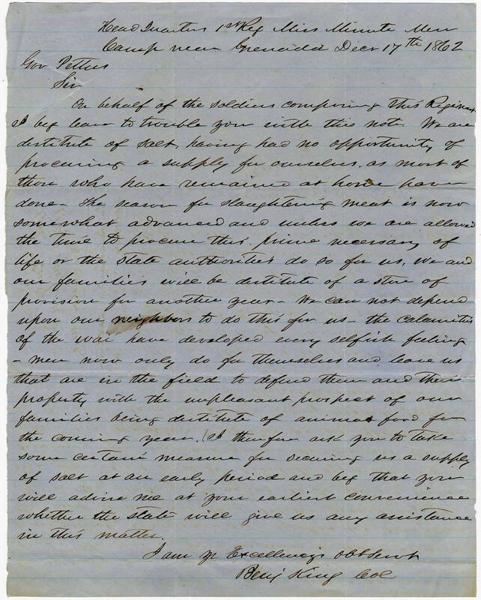 Head Quarters 1st Reg Miss Minute Men
Camp near Grenada Decr 17th 1862
Gov Pettus
Sir
On behalf of the soldiers composing this Regiment
I beg leave to trouble you with this note. We are
destitute of salt, having had no opportunity of
procuring a supply for ourselves, as most of
those who have remained at home have
done. The season for slaughtering meat is now
somewhat advanced and unless we are allowed
the time to procure this prime necessary of
life or the State authorities do so for us, we and
our families will be destitute of a store of
provision for another year. We can not depend
upon our neighbors to do this for us. the calamities
of the war have developed every selfish feeling
- men now only do for themselves and leave us
that are in the field to defend them and their
property with the unpleasant prospect of our
families being destitute of animal food for
the coming year. I therefore ask you to take
some certain measure for securing us a supply
of salt at an early period and beg that you
will advise me at your earliest convenience
whether the state will give us any assistance
in this matter.
I am yr Excellency's obt Servt
Benj King Col